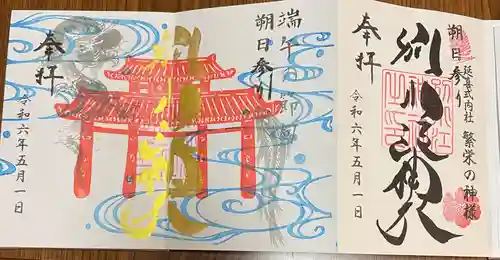 朔日参り
延喜式内社 繁栄の神様
別小江神社
奉拝
令和六年五月一日
端午の節句
朔日参り
奉拝
令和六年五月一日